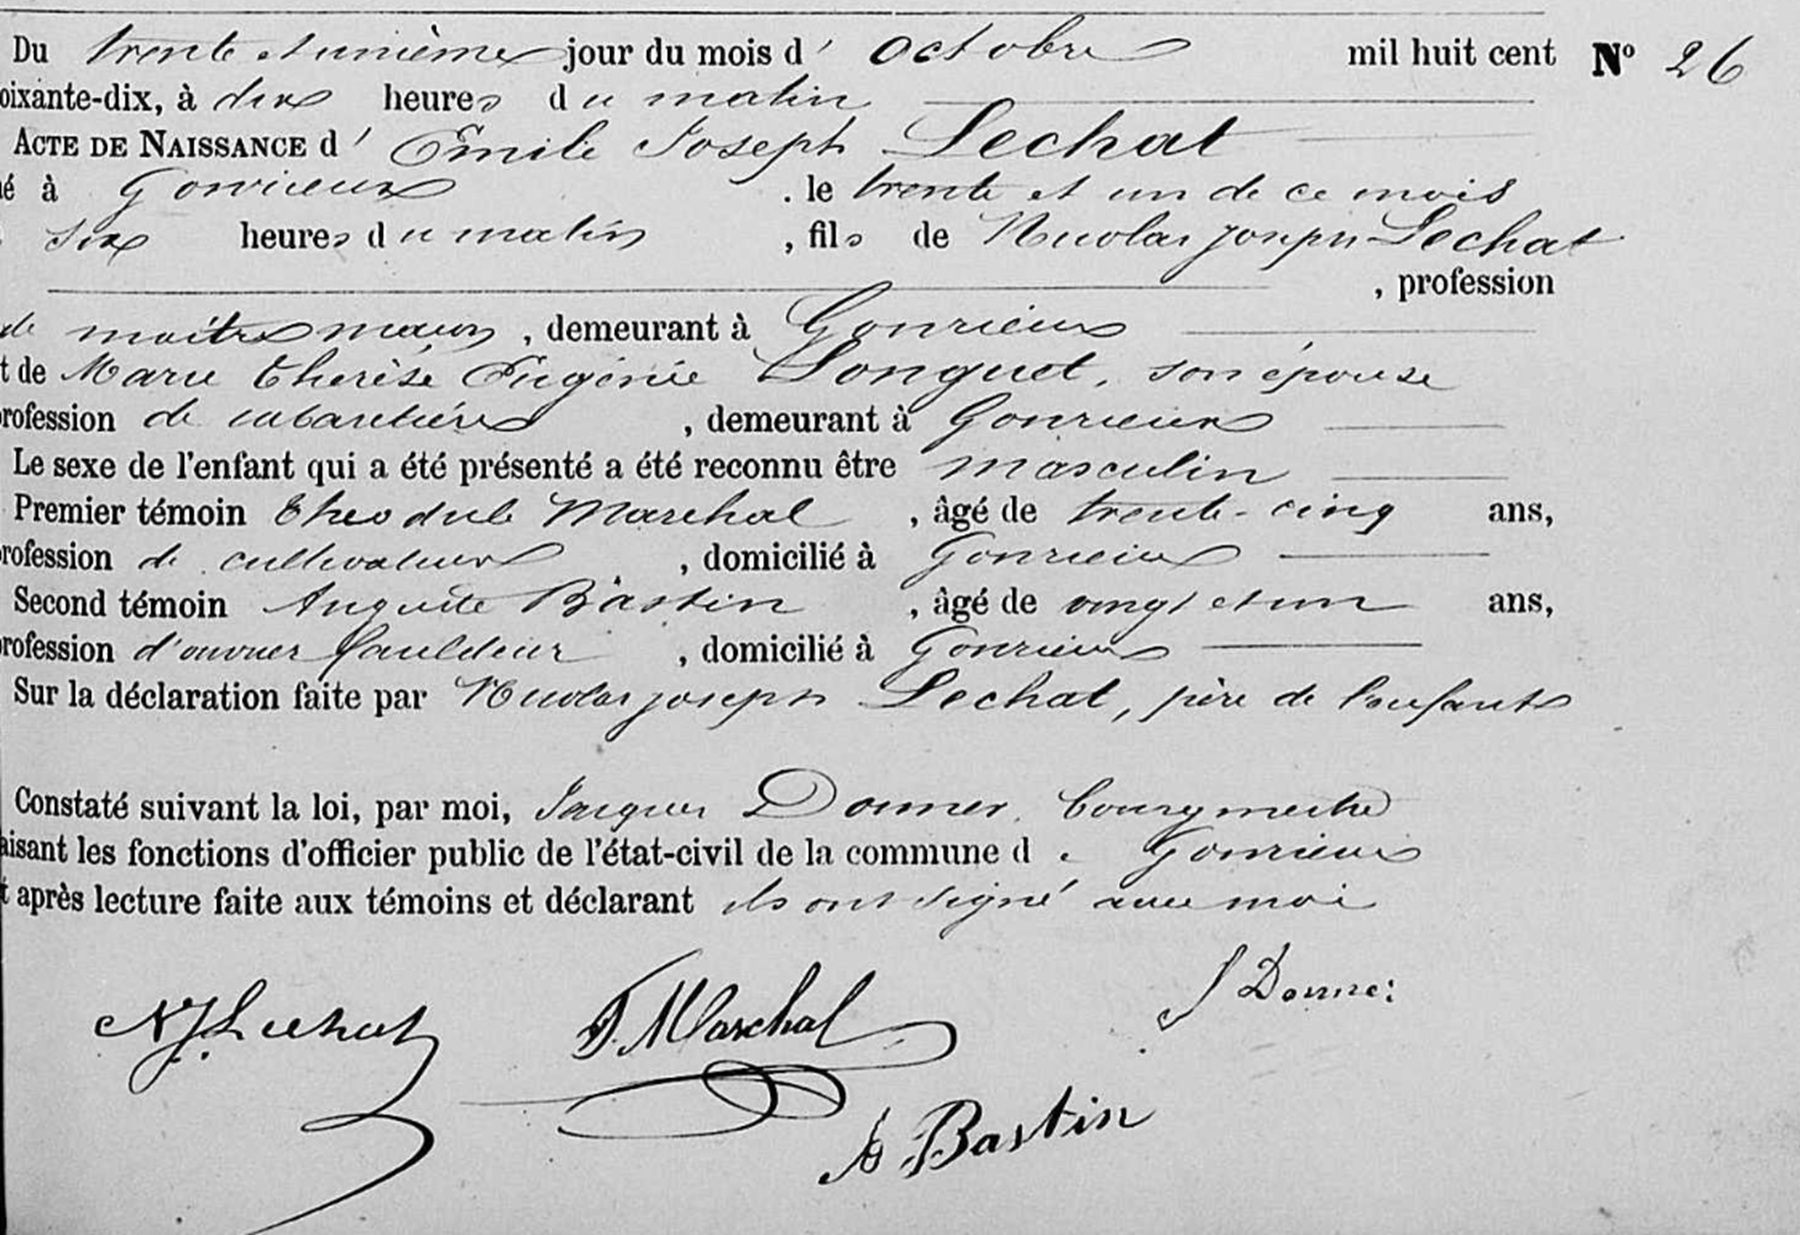 Du trente et unième jour du mois d' octobre mil huit cent N° 26
oixante-dix, à dix heures du matin
ACTE DE NAISSANCE d' Emile Joseph Lechat
né à Gonrieux . le trente et un de ce mois
six heures du matin , fils de Nicolas Joseph Lechat
, profession
de maître maçon , demeurant à Gonrieux
t de Marie Therèse Eugénie Longuet, son épouse
rofession de cabaretière , demeurant à Gonrieux
Le sexe de l'enfant qui a été présenté a été reconnu être masculin
Premier témoin Theodule Marchal , âgé de trente-cinq ans,
rofession de cultivateur , domicilié à Gonrieux
Second témoin Auguste Bastin , âgé de vingt et un ans,
rofession d'ouvrier , domicilié à Gonrieux
Sur la déclaration faite par Nicolas joseph Lechat, père de l'enfant
Constaté suivant la loi, par moi, Jacques Donner, bourgmestre
aisant les fonctions d'officier public de l'état-civil de la commune de Gonrieux
t après lecture faite aux témoins et déclarant ils ont signé avec moi
J Donner
NJ. Lechat T. Marchal
A Bastin